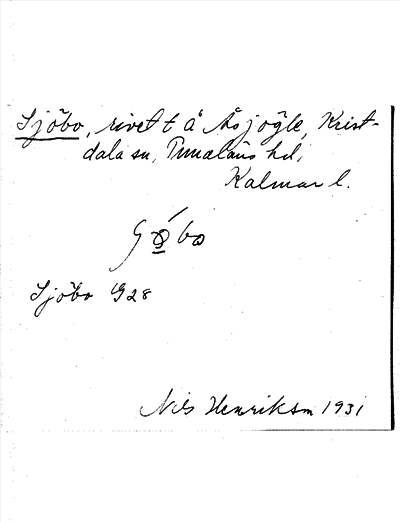 Sjöbo, rivet t å Åsjögle, Krist-
dala sn, Tunaläns hd,
Kalmar l.
Sjöbo G28
Nils Henriksson 1931